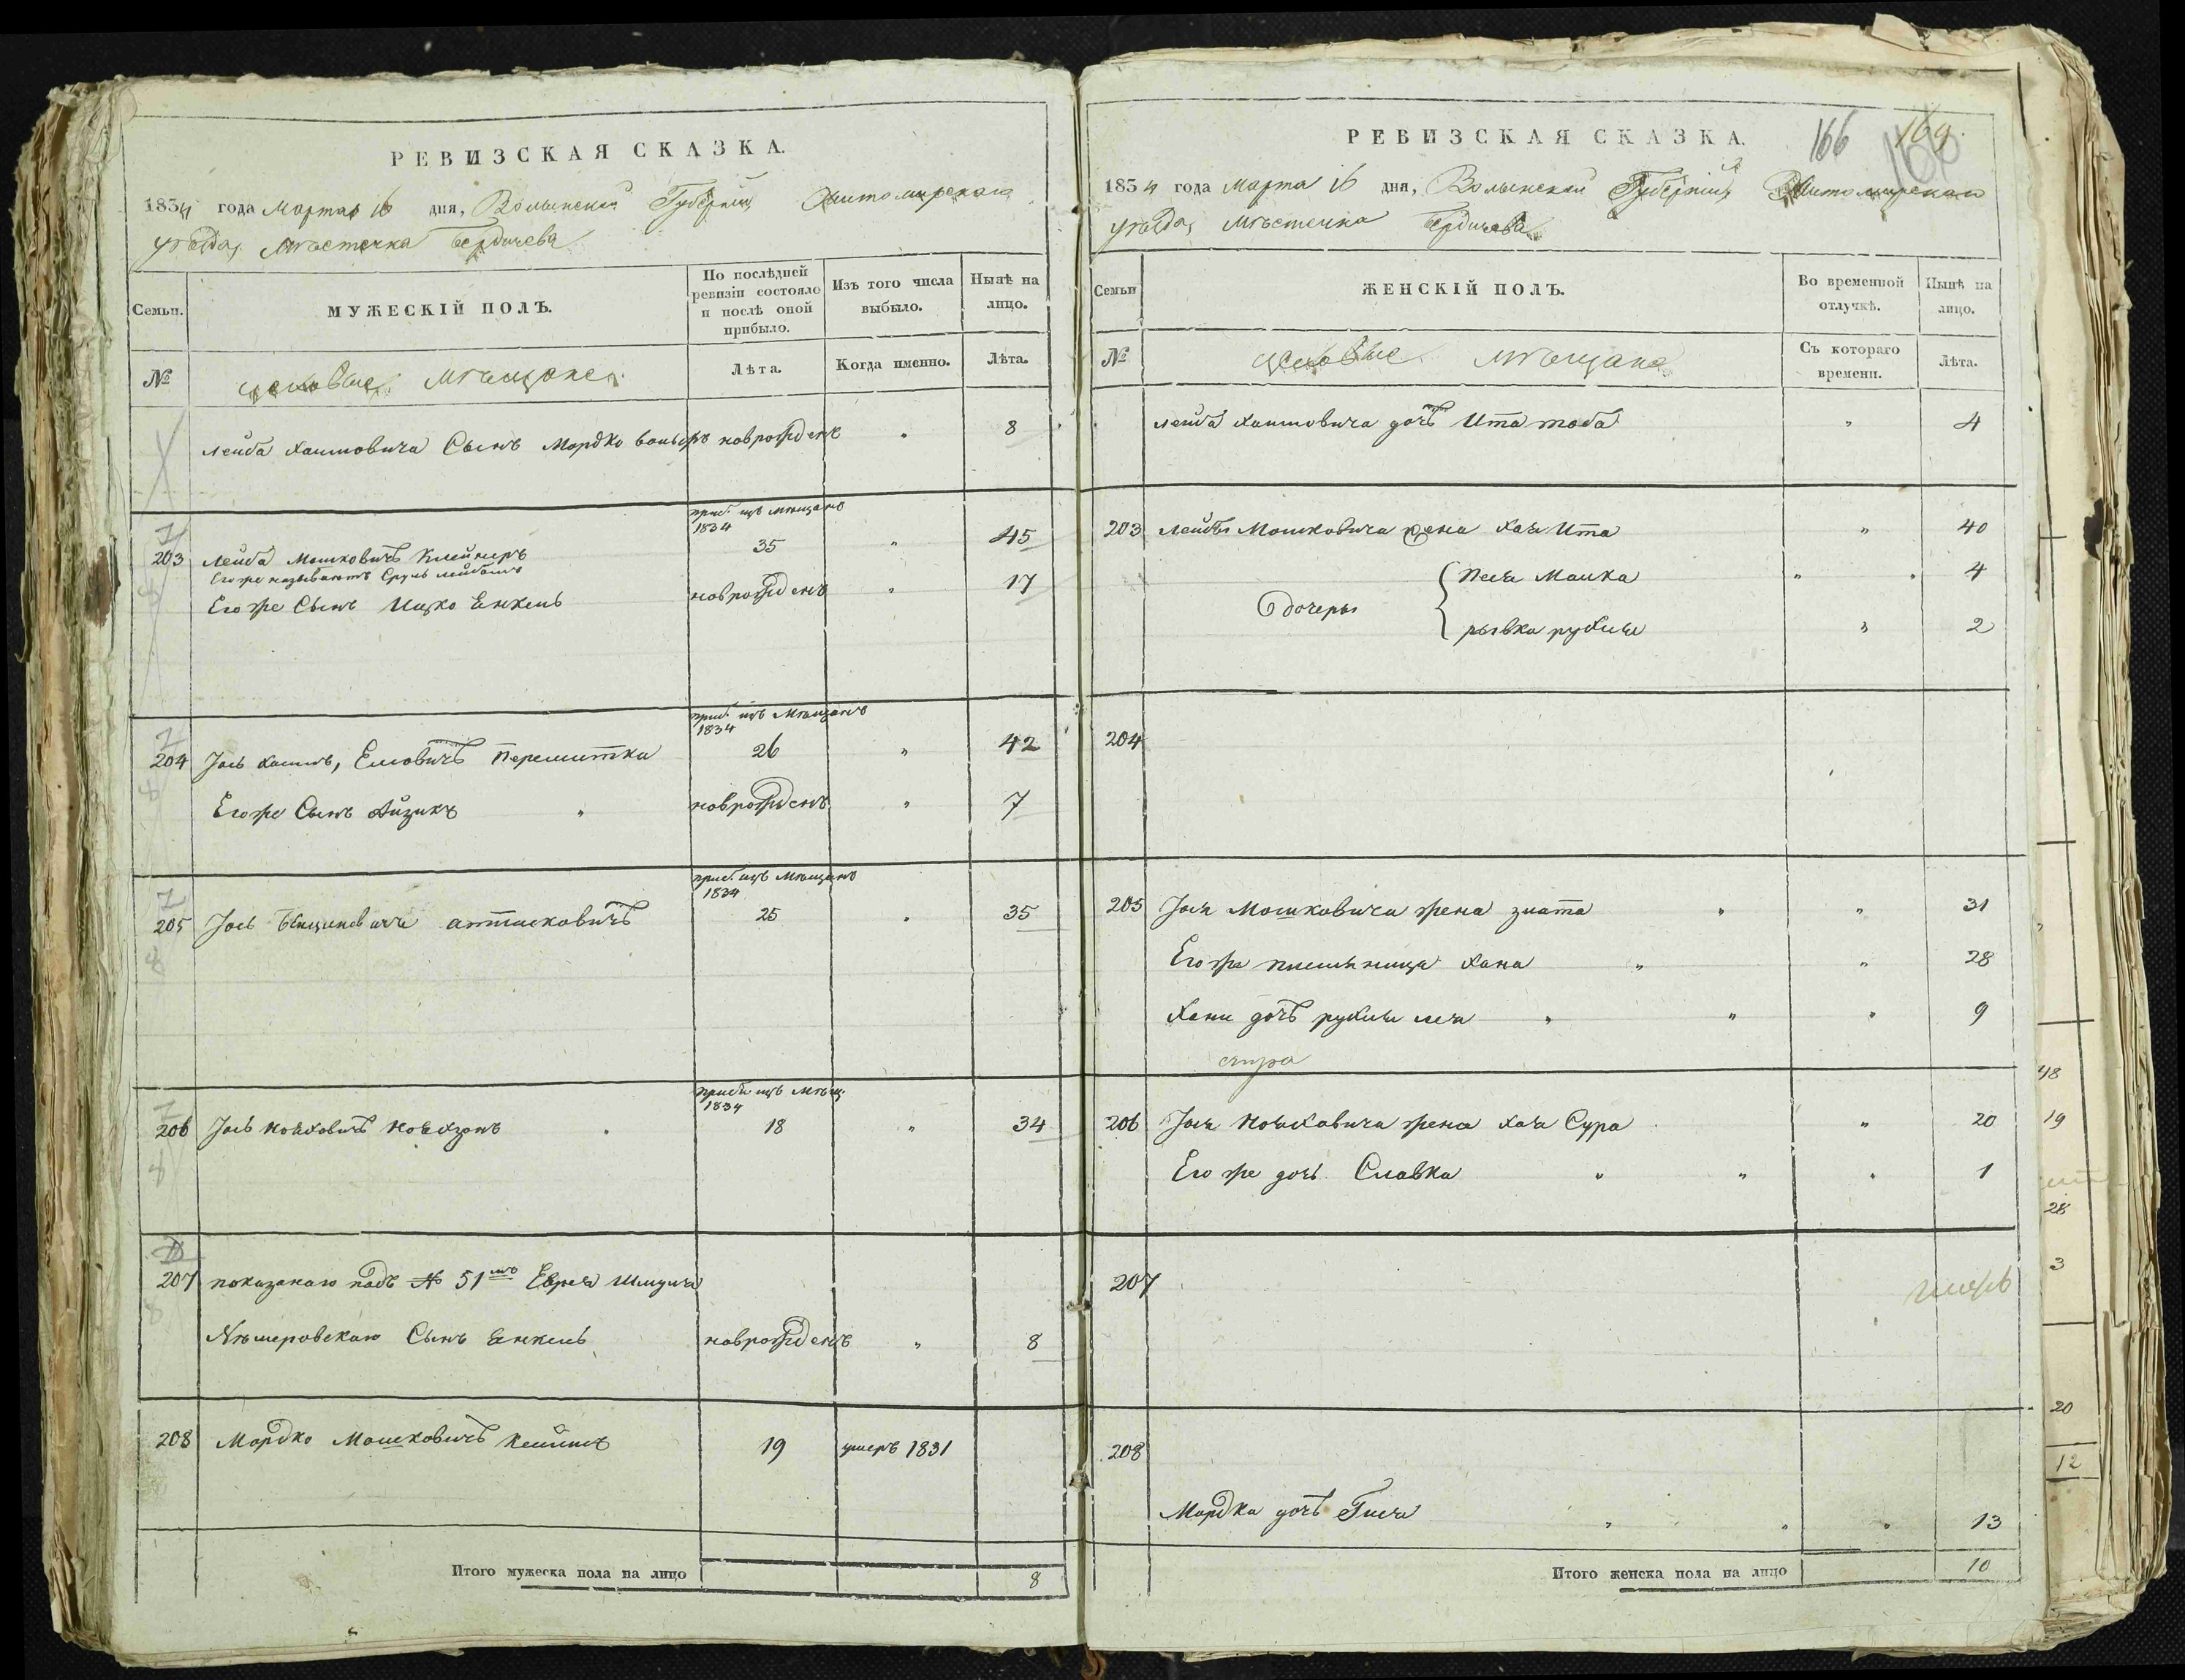 РЕВИЗСКАЯ СКАЗКА.
1834 года Марта 16 дня, Волынской Губерніи Житомирскаго
уѣзда, Мѣстечка Бердичева
Семьи.
МУЖЕСКІЙ ПОЛЪ.
По послѣдней ревизіи состояло и послѣ оной прибыло.
Изъ того числа выбыло.
Нынѣ на лицо.
№
цеховые Мѣщане
Лѣта.
Когда именно.
Лѣта.
Лейба Хаимовича Сынъ Мордко новрожденъ " 8
приб. изъ мѣщанъ
1834
203 Лейба Мошковичъ Клейнеръ 35 " 45
Его же называютъ Сруль Лейбышъ
Его же Сынъ Ицко Енкель новрожденъ " 17
приб. изъ Мѣщанъ
1834
204 Іось Хаимъ, Елиовичъ Перемитка 26 " 42
Его же Сынъ Айзикъ " новрожденъ " 7
приб. изъ Мѣщанъ
1834
205 Іось 25 " 35
приб. изъ Мѣщ.
1834
206 Іось 18 " 34
207 показанаго подъ № 51мъ Еврея Шмуля
Нѣмеровскаго Сынъ Енкель новрожденъ " 8
208 Мордко Мошковичъ 19 умеръ 1831
Итого мужеска пола на лицо 8
РЕВИЗСКАЯ СКАЗКА. 166 169
1834 года Марта 16 дня, Волынской Губерніи Житомирскаго
уѣзда, Мѣстечка Бердичева
Семьи
ЖЕНСКІЙ ПОЛЪ.
Во временной отлучкѣ.
Нынѣ на лицо.
№
цеховые мѣщане
Съ котораго времени.
Лѣта.
Лейба Хаимовича дочь Ита тоба " 4
203 Лейбы Мошковича жена Хая Ита " 40
дочеры
Песя Малка " " 4
рывка рухля " 2
204
205 Іося Мошковича жена злата " " 31
Его же племяница Хана " " 28
Хани дочь рухля лея " " " 9
206 Іося жена Хая Сура " 20
Его же дочь Славка " " " 1
207
208
Мордка дочь Гися " " " 13
Итого женска пола на лицо 10
48
19
28
3
20
12